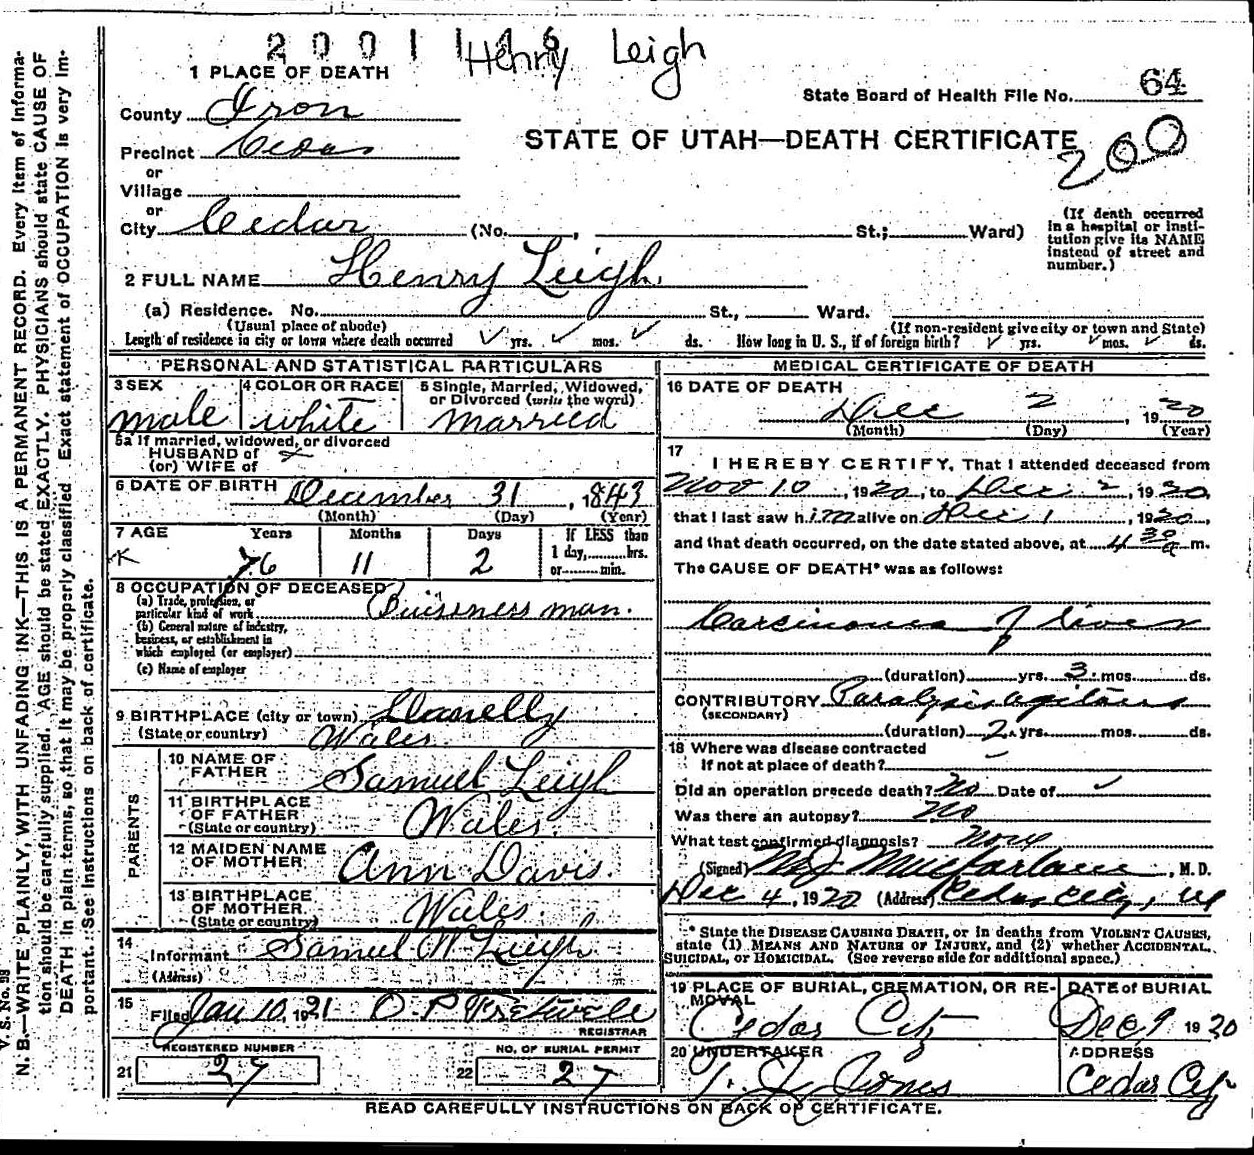 2001116
Henry Leigh
1 PLACE OF DEATH
State Board of Health File No. 64
County Iron
STATE OF UTAH—DEATH CERTIFICATE
200
Precinct Cedar
or
Village
or
City Cedar (No. , St.; Ward)
(If death occurred in a hospital or institution give its NAME instead of street and number.)
2 FULL NAME Henry Leigh.
(a) Residence. No. St., Ward.
(Usual place of abode) (If non-resident give city or town and State)
Length of residence in city or town where death occurred ✓ yrs. ✓ mos. ✓ ds. How long in U. S., if of foreign birth? ✓ yrs. ✓ mos. ✓ ds.
PERSONAL AND STATISTICAL PARTICULARS
3 SEX
male
4 COLOR OR RACE
white
5 Single, Married, Widowed, or Divorced (write the word)
married
5a If married, widowed, or divorced
HUSBAND of
(or) WIFE of
6 DATE OF BIRTH December 31, 1843
(Month) (Day) (Year)
7 AGE Years Months Days If LESS than
76 11 2 1 day,......hrs.
or......min.
8 OCCUPATION OF DECEASED
(a) Trade, profession, or particular kind of work Buiseness man.
(b) General nature of industry, business, or establishment in which employed (or employer)
(c) Name of employer
9 BIRTHPLACE (city or town) Llanelly
(State or country) Wales.
PARENTS
10 NAME OF FATHER Samuel Leigh
11 BIRTHPLACE OF FATHER (State or country) Wales.
12 MAIDEN NAME OF MOTHER Ann Davis.
13 BIRTHPLACE OF MOTHER (State or country) Wales.
14
Informant Samuel W Leigh
(Address)
15
Filed Jan 10, 1921 O. P. Fretwell
REGISTRAR
REGISTERED NUMBER
21 27
NO. OF BURIAL PERMIT
22 27
MEDICAL CERTIFICATE OF DEATH
16 DATE OF DEATH
Dec 2, 1920
(Month) (Day) (Year)
17
I HEREBY CERTIFY, That I attended deceased from
Nov 10, 1920, to Dec 2, 1920,
that I last saw him alive on Dec 1, 1920,
and that death occurred, on the date stated above, at 4 30 a m.
The CAUSE OF DEATH* was as follows:
Carcinoma of Liver
(duration) yrs. 3 mos. ds.
CONTRIBUTORY Paralysis agitans
(SECONDARY)
(duration) 2 yrs. mos. ds.
18 Where was disease contracted
If not at place of death? –
Did an operation precede death? No Date of ✓
Was there an autopsy? No
What test confirmed diagnosis? None
(Signed) M J Macfarlane, M. D.
Dec 4, 1920 (Address) Cedar City, Ut
* State the DISEASE CAUSING DEATH, or in deaths from VIOLENT CAUSES,
state (1) MEANS AND NATURE OF INJURY, and (2) whether ACCIDENTAL,
SUICIDAL, or HOMICIDAL. (See reverse side for additional space.)
19 PLACE OF BURIAL, CREMATION, OR REMOVAL
Cedar City
DATE of BURIAL
Dec 9 1920
20 UNDERTAKER
T. J. Jones
ADDRESS
Cedar City
READ CAREFULLY INSTRUCTIONS ON BACK OF CERTIFICATE.
V. S. No. 98
N. B.—WRITE PLAINLY, WITH UNFADING INK—THIS IS A PERMANENT RECORD. Every item of Informa-
tion should be carefully supplied. AGE should be stated EXACTLY. PHYSICIANS should state CAUSE OF
DEATH in plain terms, so that it may be properly classified. Exact statement of OCCUPATION is very im-
portant. See instructions on back of certificate.